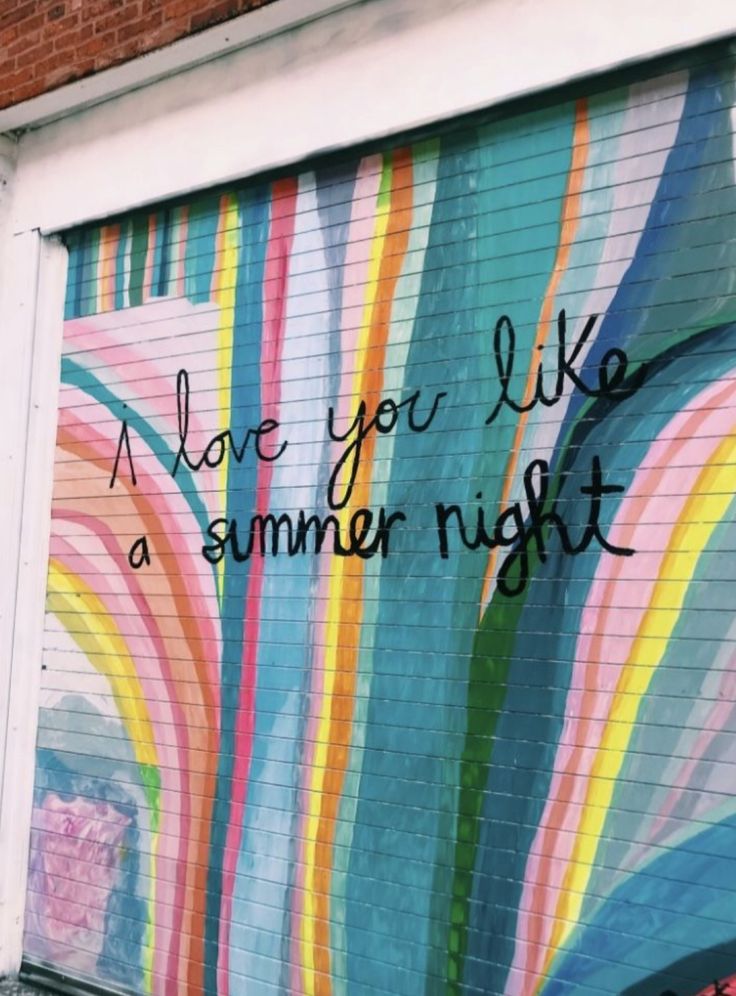 i love you like
a summer night